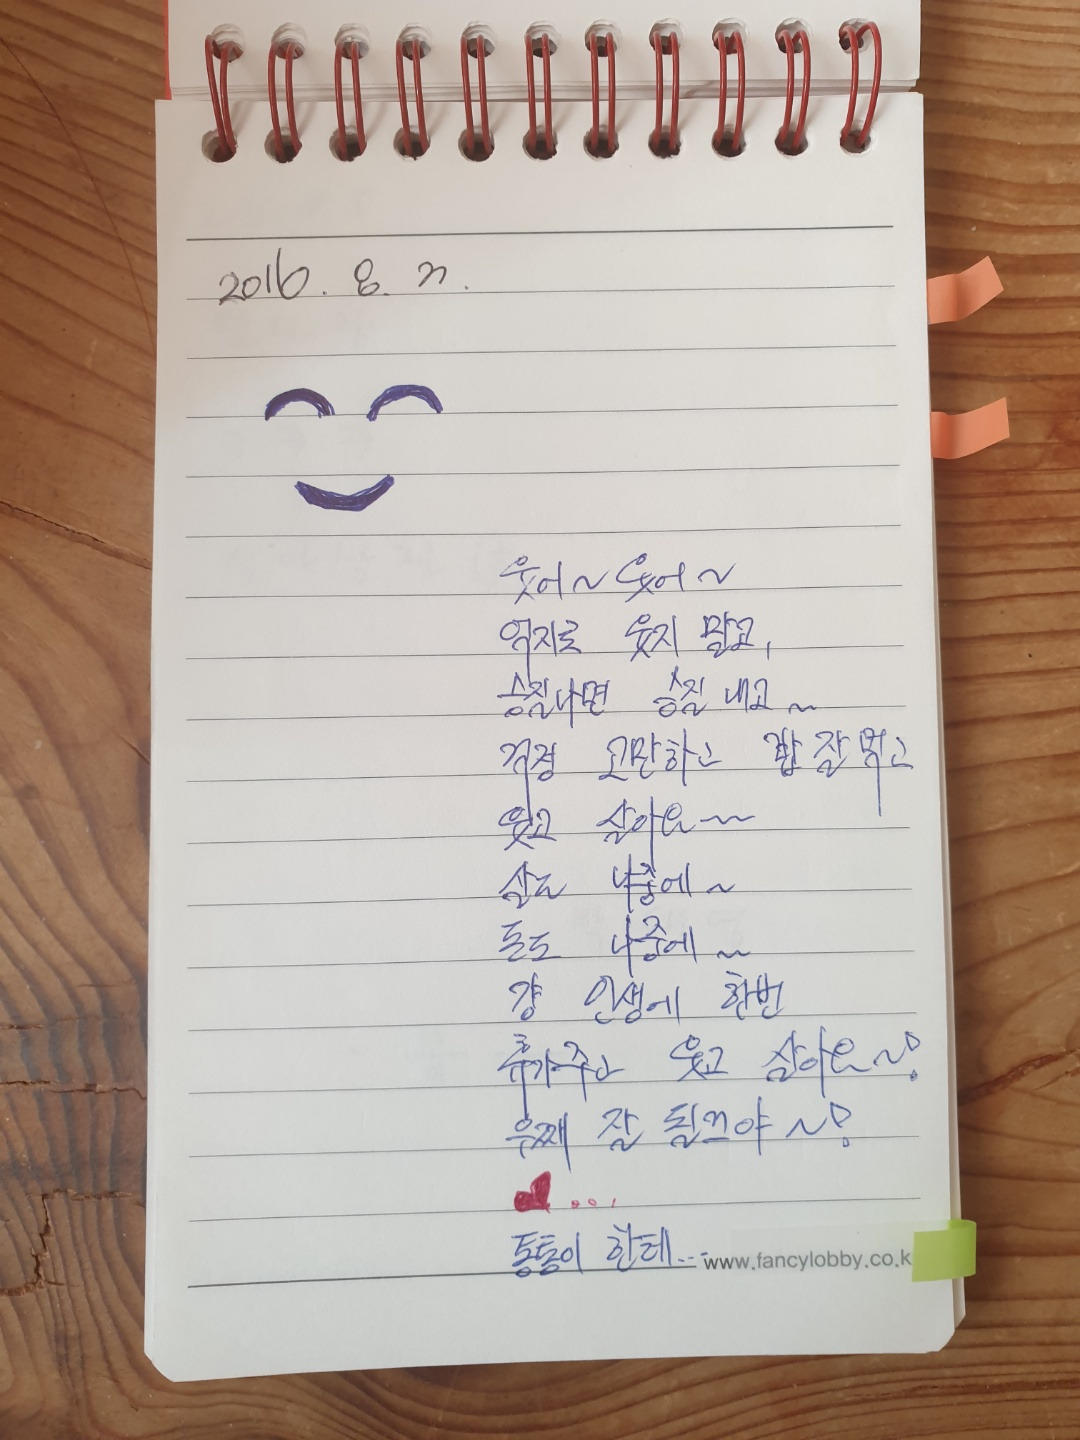 2016. 8. 21.
웃어~ 웃어~
억지로 웃지 말고,
승질나면 승질 내고~
걱정 고만하고 밥 잘 먹고
웃고 살아요~~
살도 나중에~
돈도 나중에~
걍 인생에 한번
휴가주고 웃고 살아요~!
우째 잘 될끄야~!
...
통통이 한테...
www.fancylobby.co.k